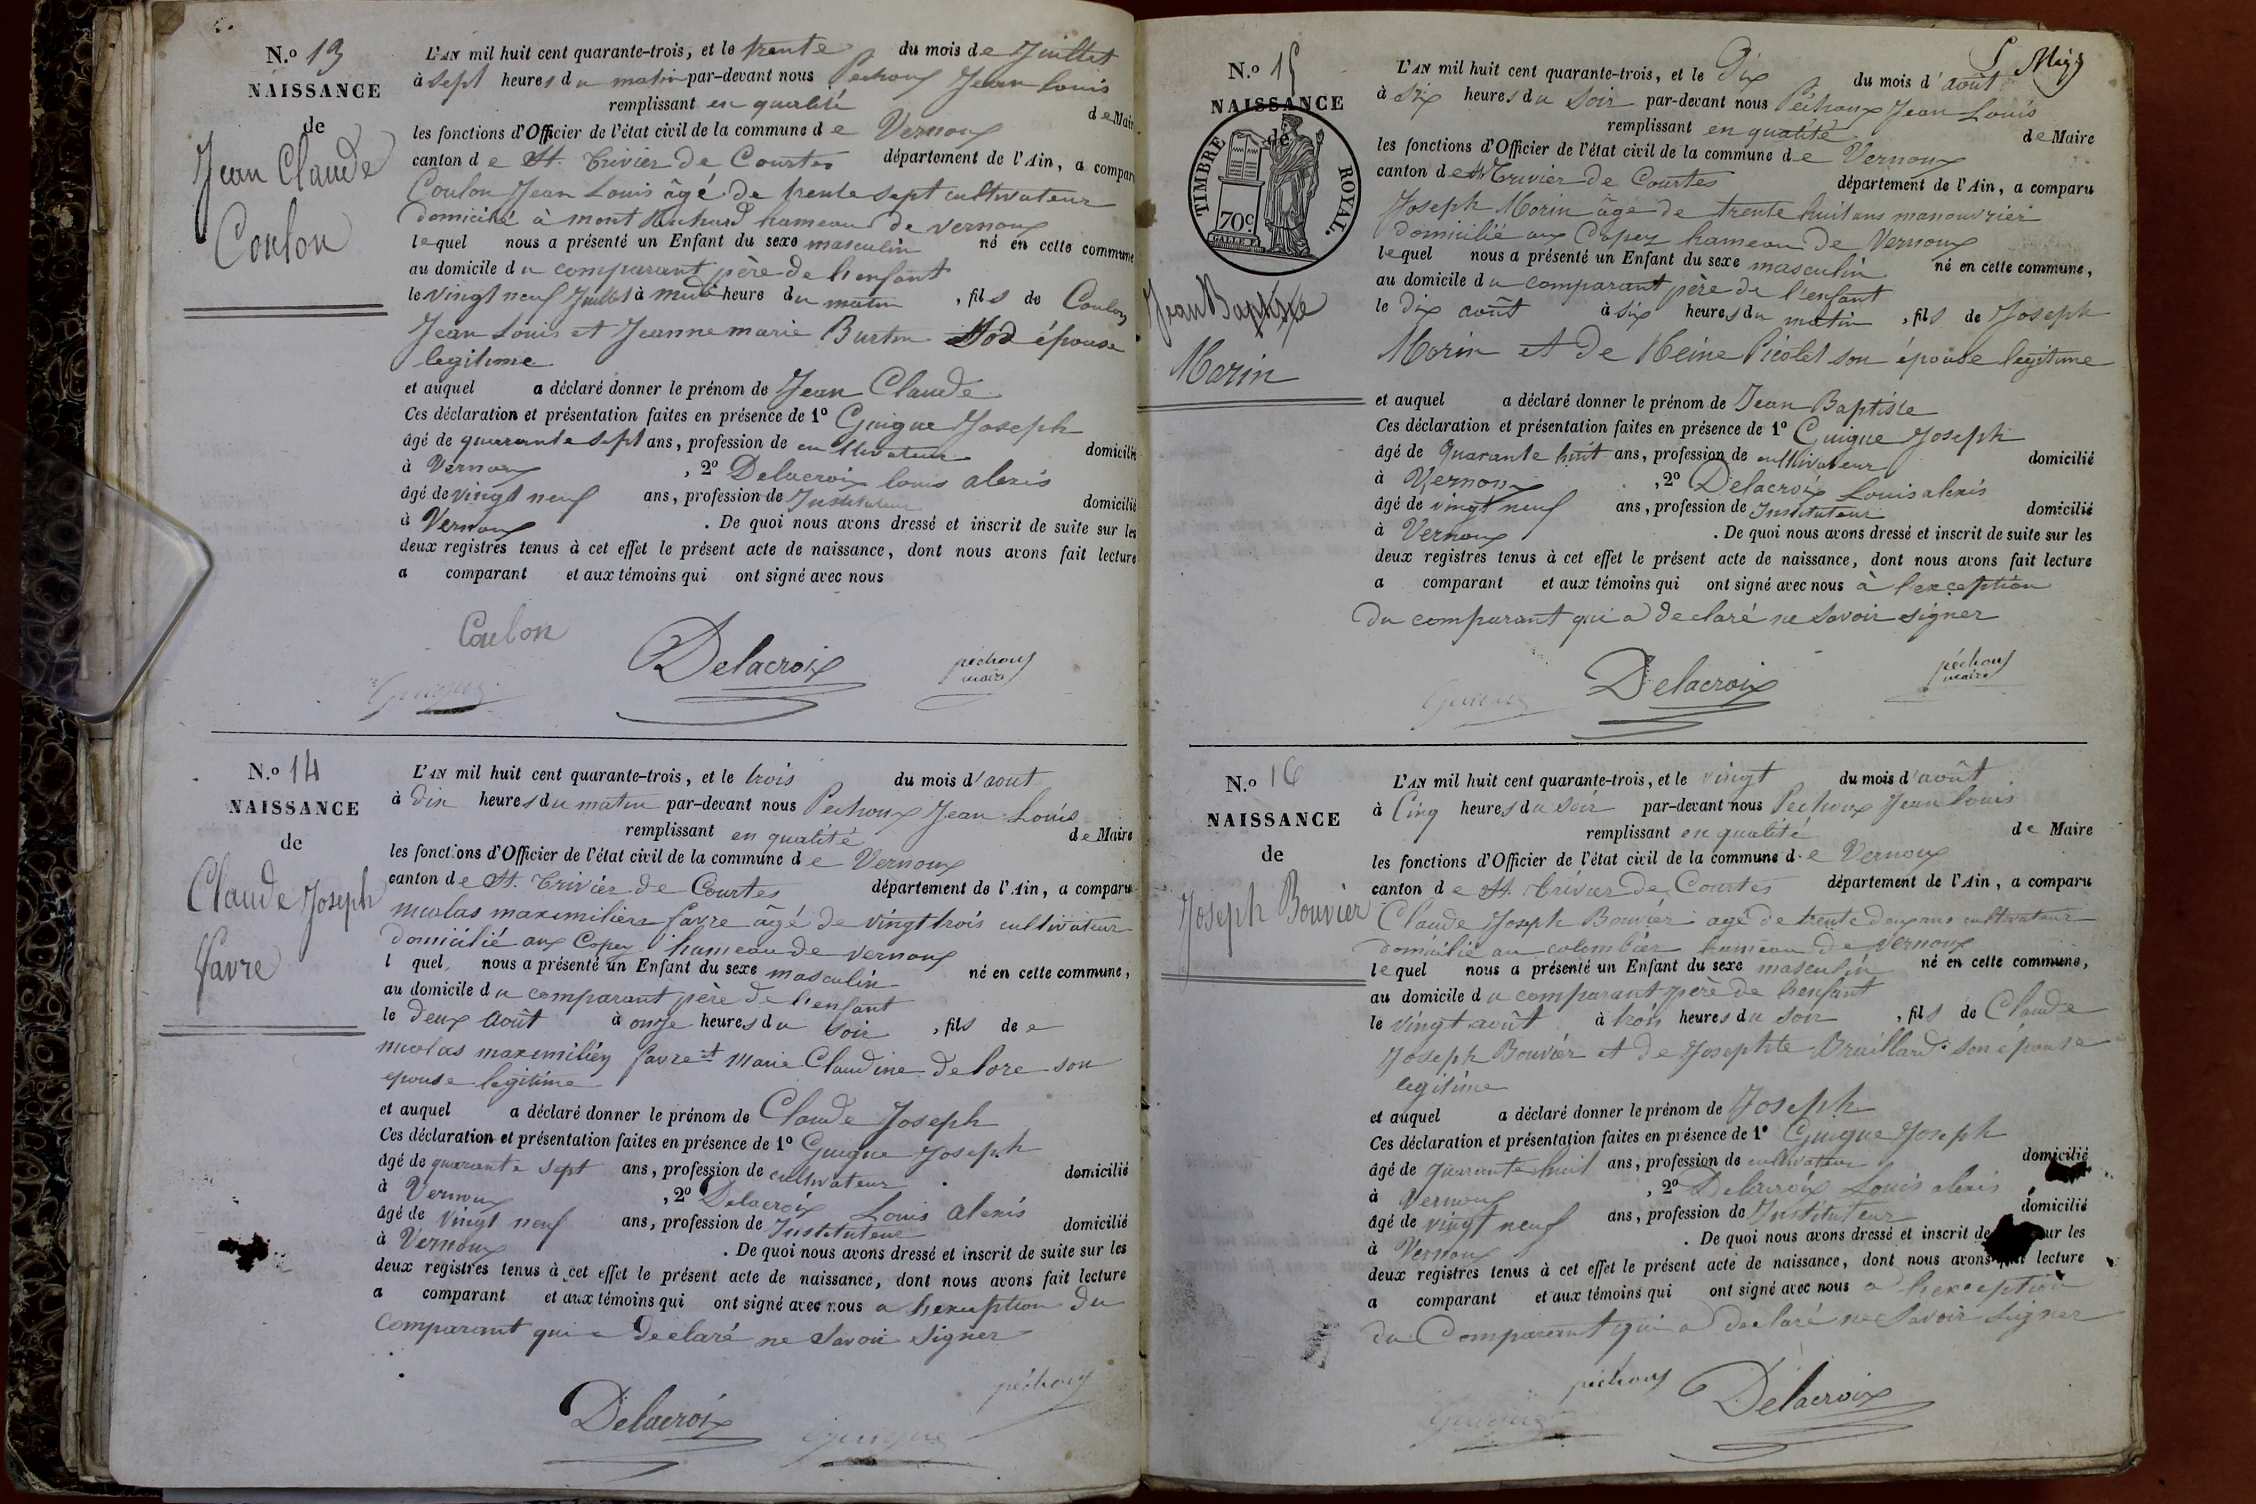 N.o 13
NAISSANCE
de
Jean Claude
Coulon
L'AN mil huit cent quarante-trois, et le trente du mois de Juillet
à sept heures du matin par-devant nous Pechoux Jean Louis
remplissant en qualité de Maire
les fonctions d'Officier de l'état civil de la commune de Vernoux
canton de St. Trivier de Courtes département de l'Ain, a comparu
Coulon Jean Louis âgé de trente sept cultivateur
domicilié à mont hameau de vernoux
lequel nous a présenté un Enfant du sexe masculin né en cette commune
au domicile du comparant père de l'enfant
le vingt neuf Juillet à heure du matin, fils de Coulon
Jean Louis et Jeanne marie Burtin épouse
legitime
et auquel a déclaré donner le prénom de Jean Claude
Ces déclaration et présentation faites en présence de 1o Guigue Joseph
âgé de quarante sept ans, profession de cultivateur domicilié
à Vernoux, 2o Delacroix Louis alexis
âgé de vingt neuf ans, profession de Instituteur domicilié
à Vernoux. De quoi nous avons dressé et inscrit de suite sur les
deux registres tenus à cet effet le présent acte de naissance, dont nous avons fait lecture
a comparant et aux témoins qui ont signé avec nous
Coulon
Delacroix
péchoux
maire
Guigue
N.o 14
NAISSANCE
de
Claude Joseph
favre
L'AN mil huit cent quarante-trois, et le trois du mois d'aout
à dix heures du matin par-devant nous Pechoux Jean Louis
remplissant en qualité de Maire
les fonctions d'Officier de l'état civil de la commune de Vernoux
canton de St. Trivier de Courtes département de l'Ain, a comparu
nicolas maximilien favre âgé de vingt trois cultivateur
domicilié aux Copey hameau de vernoux
l quel, nous a présenté un Enfant du sexe masculin né en cette commune,
au domicile du comparant père de l'enfant
le deux Août à onze heures du soir, fils de e
nicolas maximilien favre et Marie Claudine delore son
epouse legitime
et auquel a déclaré donner le prénom de Claude Joseph
Ces déclaration et présentation faites en présence de 1o Guigue Joseph
âgé de quarante sept ans, profession de cultivateur domicilié
à Vernoux, 2o Delacroix Louis alexis
âgé de vingt neuf ans, profession de Instituteur domicilié
à Vernoux. De quoi nous avons dressé et inscrit de suite sur les
deux registres tenus à cet effet le présent acte de naissance, dont nous avons fait lecture
a comparant et aux témoins qui ont signé avec nous a l'exception du
comparant qui a declaré ne savoir signer
péchoux
Delacroix
Guigue
N.o 15
NAISSANCE
de
TIMBRE ROYAL.
70c.
Jean Baptiste
Morin
L'AN mil huit cent quarante-trois, et le Dix du mois d'août
à six heures du soir par-devant nous Péchoux Jean Louis
remplissant en qualité de Maire
les fonctions d'Officier de l'état civil de la commune de Vernoux
canton de St Trivier de Courtes département de l'Ain, a comparu
Joseph Morin âgé de trente huit ans manouvrier
domicilié aux Copez hameau de Vernoux
lequel nous a présenté un Enfant du sexe masculin né en cette commune,
au domicile du comparant père de l'enfant
le dix août à six heures du matin, fils de Joseph
Morin et de Reine Picolet son épouse legitime
et auquel a déclaré donner le prénom de Jean Baptiste
Ces déclaration et présentation faites en présence de 1o Guigue Joseph
âgé de Quarante huit ans, profession de cultivateur domicilié
à Vernoux, 2o Delacroix Louis alexis
âgé de vingt neuf ans, profession de Instituteur domicilié
à Vernoux. De quoi nous avons dressé et inscrit de suite sur les
deux registres tenus à cet effet le présent acte de naissance, dont nous avons fait lecture
a comparant et aux témoins qui ont signé avec nous à l'exception
du comparant qui a declaré ne savoir signer
Delacroix
péchoux
maire
N.o 16
NAISSANCE
de
Joseph Bouvier
L'AN mil huit cent quarante-trois, et le vingt du mois d'août
à Cinq heures du soir par-devant nous Pechoux Jean Louis
remplissant en qualité de Maire
les fonctions d'Officier de l'état civil de la commune de Vernoux
canton de St. Trivier de Courtes département de l'Ain, a comparu
Claude Joseph Bouvier agé de trente deux ans cultivateur
domicilié au colombier hameau de vernoux
lequel nous a présenté un Enfant du sexe masculin né en cette commune,
au domicile du comparant père de l'enfant
le vingt août à trois heures du soir, fils de Claude
Joseph Bouvier et de Josephte Braillard son épouse
legitime
et auquel a déclaré donner le prénom de Joseph
Ces déclaration et présentation faites en présence de 1o Guigue Joseph
âgé de quarante huit ans, profession de cultivateur domicilié
à Vernoux, 2o Delacroix Louis alexis
âgé de vingt neuf ans, profession de Instituteur domicilié
à Vernoux. De quoi nous avons dressé et inscrit de sur les
deux registres tenus à cet effet le présent acte de naissance, dont nous avons lecture
a comparant et aux témoins qui ont signé avec nous a l'exception
du Comparant qui a declaré ne savoir signer
péchoux
Delacroix
Guigue